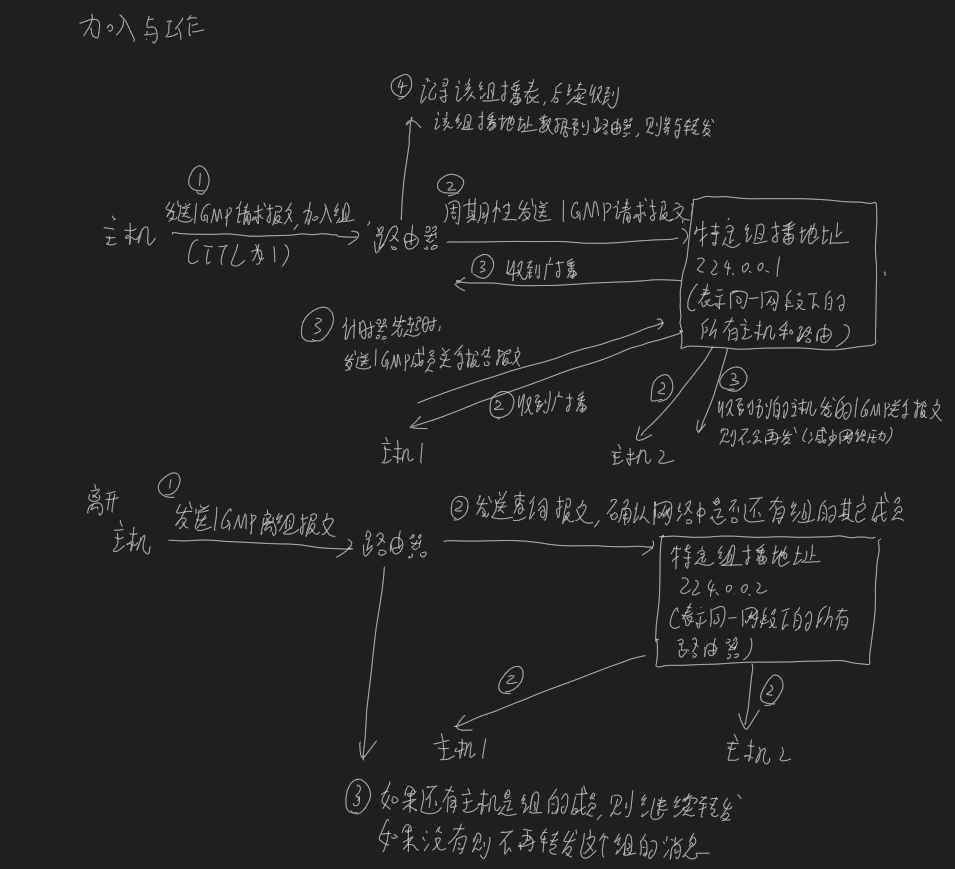 加入与工作
④ 记录该组播表,后续收到
该组播地址数据到路由器,则参与转发
①
发送IGMP请求报文,加入组
主机
(TTL为1)
路由器
②
周期性发送 IGMP请求报文
③ 收到广播
特定组播地址
224.0.0.1
(表示同一网段下的
所有主机和路由)
③ 计时器先超时,
发送IGMP成员关系报告报文
② 收到广播
主机1
②
主机2
③
收到别的主机发的IGMP关系报文
则不会再发(减少网络压力)
离开
①
发送IGMP离组报文
主机
路由器
② 发送查询报文,确认网络中是否还有组的其它成员
特定组播地址
224.0.0.2
(表示同一网段下的所有
路由器)
②
主机1
②
主机2
③ 如果还有主机是组的成员,则继续转发
如果没有则不再转发这个组的消息